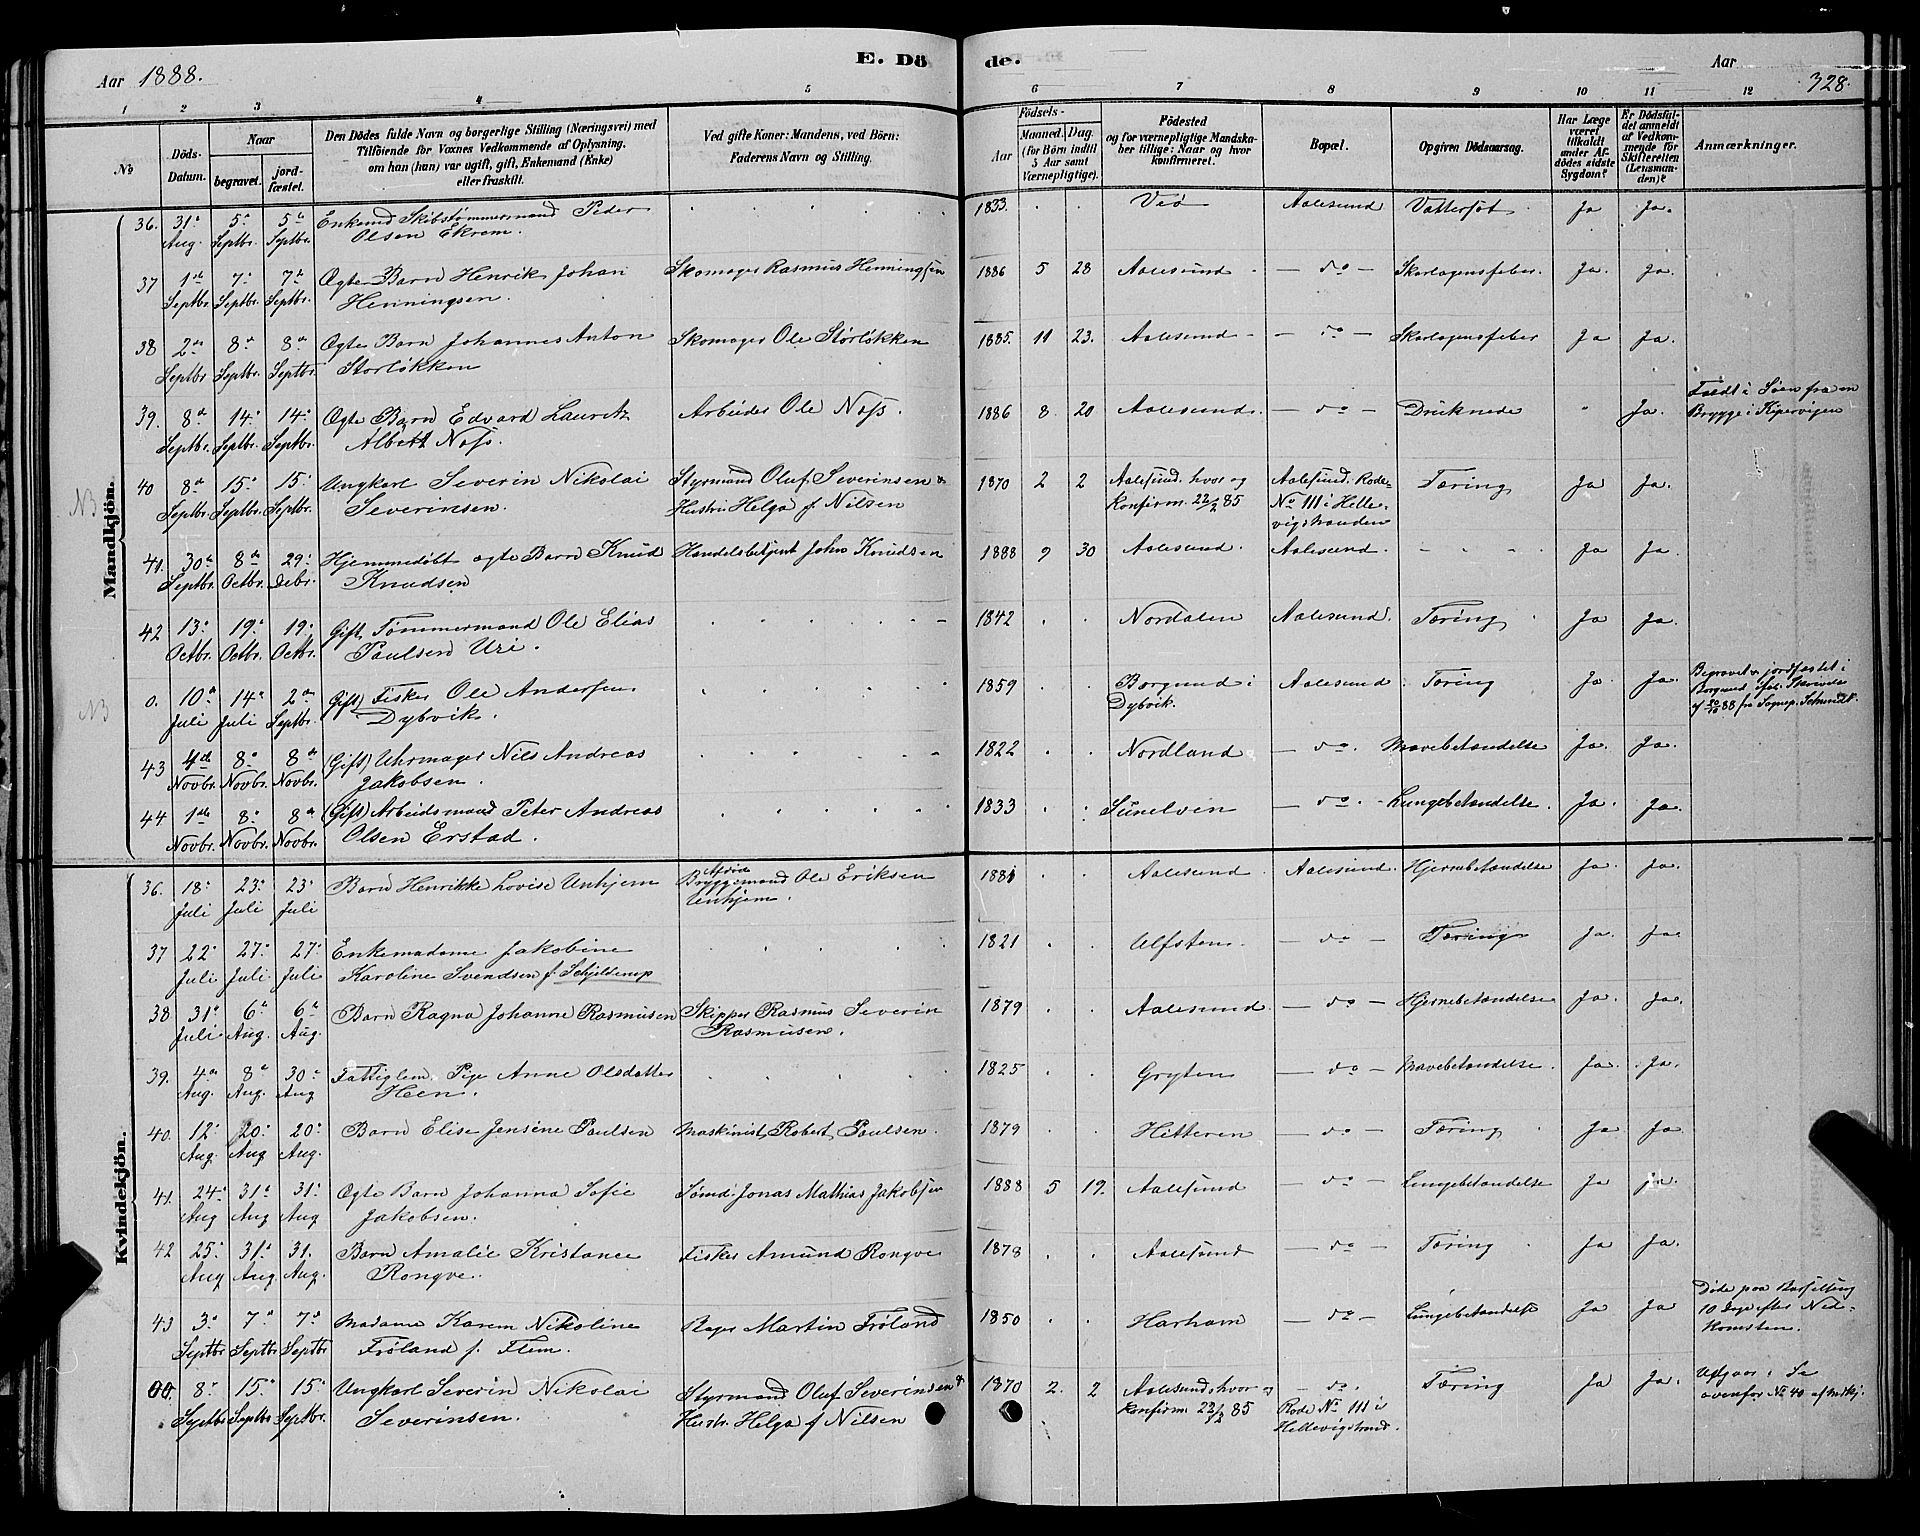 Aar 1888. E. Döde. Aar 328.
1 2 3 4 5 6 7 8 9 10 11 12
No Döds-Datum. Naar begravet. jordfæstet. Den Dödes fulde Navn og borgerlige Stilling (Næringsvei) med Tilföiende for Voxnes Vedkommende af Oplysning, om han (hun) var ugift, gift, Enkemand (Enke) eller fraskilt. Ved gifte Koner: Mandens, ved Börn: Faderens Navn og Stilling. Födsels- Aar Maaned. Dag. (for Börn indtil 5 Aar samt Værnepligtige). Födested og for værnepligtige Mandskaber tillige: Naar og hvor konfirmeret. Bopæl. Opgiven Dödsaarsag. Har Læge været tilkaldt under Afdödes sidste Sygdom? Er Dödsfaldet anmeldt af Vedkommende for Skifteretten (Lensmanden)? Anmærkninger.
Mandkjön.
36. 31. Aug. 5. Septbr. 5. Septbr. Enkemd Skibstømmermand Peder Olsen Ekrem. 1833. Veø Aalesund Vattersot Ja Ja.
37 1ste Septbr. 7. Septbr. 7de Septbr. Ogte Barn Henrik Johan Henningsen. Skomager Rasmus Henningsen 1886 5 28 Aalesund – do – Skarlagensfeber. Ja. Ja.
38 2den Septbr. 8de Septbr. 8de Septbr. Ogte Barn Johannes Anton Storløkken Skomager Ole Størløkken 1885. 11 23. Aalesund – do – Skarlagensfeber Ja Ja.
39. 8de Septbr. 14. Septbr. 14. Septbr. Ogte Barn Edvard Lauritz Albert Nøss. Arbeider Ole Nøss. 1886 8. 20 Aalesund. – do – Druknede " Ja. Faldt i Søen fra en Brygge i Kipervigen
NB 40 8de Septbr. 15. Septbr. 15. Septbr. Ungkarl Severin Nikolai Severinsen. Styrmand Oluf Severinsen & Hustru Helga f. Nilsen 1870 2 2 Aalesund. hvor og Konfirm. 22/2 85 Aalesund. Rode No 111 i Hellevigstranden Tæring Ja Ja.
41. 30te Septbr. 8de Octbr. 29. Debr. Hjemmedøbt ægte Barn Knud Knudsen Handelsbetjent John Knudsen 1888 9 30 Aalesund. Aalesund. Ja Ja.
42 13. Octbr. 19. Octbr. 19. Octbr. Gift, Tømmermand Ole Elias Paulsen Uri. 1842 Nordalen Aalesund. Tæring Ja Ja.
NB 0. 10de Juli 14. Juli 2den Septbr. (Gift) Fisker Ole Andersen Dybvik. 1859 Borgund i Dybvik. Aalesund Tæring Ja. Ja. Begravet & jordfæstet i Borgund
43 4de Novbr. 8. Novbr. 8de Novbr. (Gift) Uhrmager Nils Andreas Jakobsen. 1822 Nordland – do. Mavebetændelse Ja. Ja.
44. 1ste Novbr. 8. Novbr. 8de Novbr. (Gift) Arbeidsmand Peter Andreas Olsen Erstad. 1833 Sunelven – do. – Lungebetændelse. Ja. Ja.
Kvindekjön.
36. 18. Juli 23. Juli 23. Juli Barn Henrikke Lovise Unhjem Bryggemand Ole Eriksen Unhjem. 1881 Aalesund Aalesund. Hjernebetændelse Ja. Ja.
37 22. Juli 27. Juli 27. Juli Enkemadame Jakobine Karoline Svendsen f. Schjelderup 1821 Ulfsten. – do – Tæring Ja. Ja.
38 31. Juli 6te Aug. 6te Aug. Barn Ragna Johanne Rasmusen Skipper Rasmus Severin Rasmusen. 1879 Aalesund – do – Hjernebetændelse Ja. Ja.
39. 4de Aug. 8de Aug. 30te Aug Fattiglem. Pige Anne Olsdatter Heen. 1825 Gryten – do – Mavebetændelse. Ja. Ja.
40. 12. Aug. 20. Aug 20. Aug. Barn Elise Jensine Paulsen Maskinist Robert Paulsen. 1879 Hitteren – do – Tæring Ja Ja
41. 24. Aug 31. Aug 31. Aug Ogte Barn Johanna Sofie Jakobsen. Sømd. Jonas Mathias Jakobsen 1888 5 19. Aalesund – do – Lungebetændelse Ja Ja.
42 25. Aug 31. Aug. 31. Aug. Barn Amalie Kristance Rongve. Fisker Amund Rongve 1878 Aalesund – do – Tæring Ja Ja.
43 3. Septbr 7de Septbr 7de Septbr Madame Karen Nikoline Frøland f. Flem. Bager Martin Frøland 1850 Harham – do – Lungebetændelse Ja Ja Døde paa Barselseng 10 Dage efter Nedkomsten.
00. 8. Septbr 15. Septbr 15. Septbr. Ungkarl Severin Nikolai Severinsen. Styrmand Oluf Severinsen & Hustr. Helga f. Nilsen 1870 2. 2 Aalesund hvor og Konfirm. 22/2 85 – do. Rode No 111 i Hellevigstrand. Tæring Ja Ja. Udgaar. Se ovenfor No 40 af Mdkj.